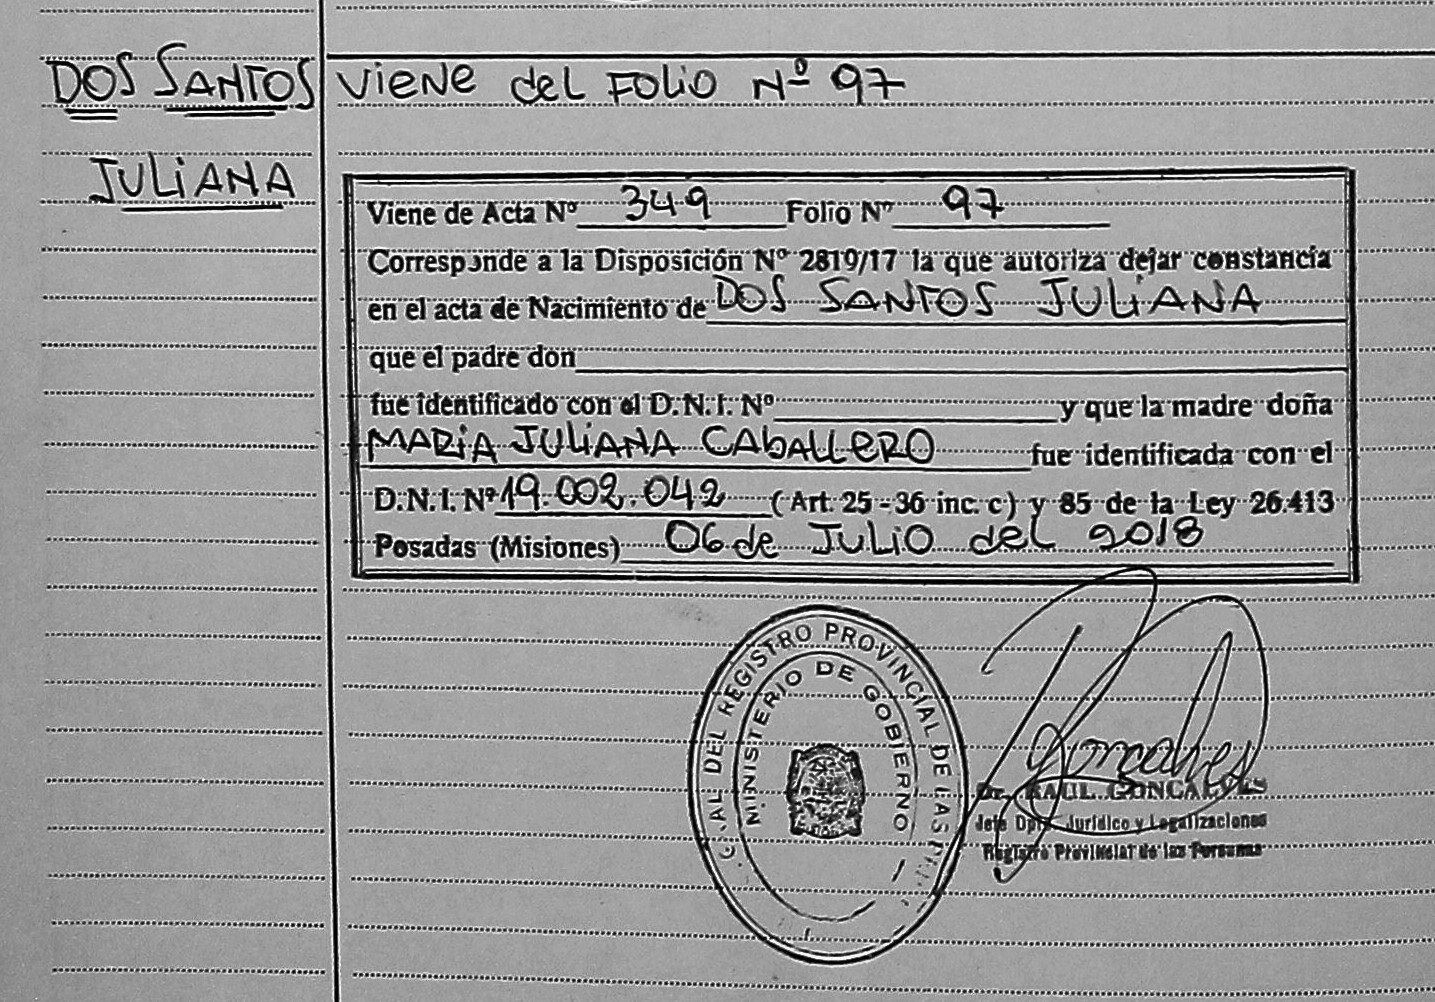 DOS SANTOS
JULIANA
VIENE del FOLIO Nº 97
Viene de Acta Nº 349 Folio Nº 97
Corresponde a la Disposición Nº 2819/17 la que autoriza dejar constancia
en el acta de Nacimiento de DOS SANTOS JULIANA
que el padre don
fue identificado con el D.N.I. Nº y que la madre doña
MARIA JULIANA CABALLERO fue identificada con el
D.N.I. Nº 19.002.042 (Art. 25 - 36 inc. c) y 85 de la Ley 26.413
Posadas (Misiones) 06 de JULIO del 2018
AL DEL REGISTRO PROVINCIAL DE LAS
MINISTERIO DE GOBIERNO
Gonçalves
Dr. RAUL GONCALVES
Jefe Dpto. Jurídico y Legalizaciones
Registro Provincial de las Personas